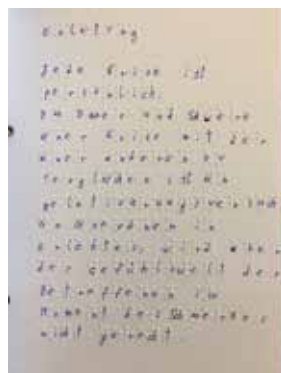 Einleitung
Jede Krise ist
persönlich.
Die Dauer und Schwere
einer Krise mit der
einer anderen zu
vergleichen ist ein
wird aber
der Gefühlswelt der
Betroffenen im
Moment des Schmerzes
nicht gerecht.